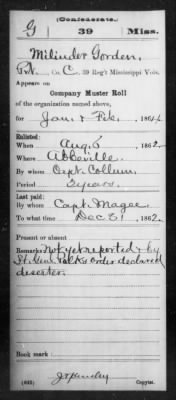 (Confederate.)
G 39 Miss.
Milinder Gorden,
Pvt., Co. C, 39 Reg't Mississippi Vols.
Appears on
Company Muster Roll
of the organization named above,
for Jan. & Feb., 1864
Enlisted:
When Aug. 6, 1862
Where Abbeville,
By whom Capt. Collum,
Period 3 years.
Last paid:
By whom Capt. Magee,
To what time Dec 31, 1862.
Present or absent
Remarks: Not yet reported & by
Lt. Genl. Polk's order declared
deserter.
Book mark:
(642) Copyist.